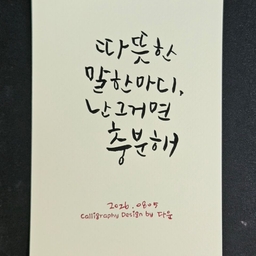 따뜻한
말한마디,
난그거면
충분해
2026.0805
Calligraphy Design by 다움